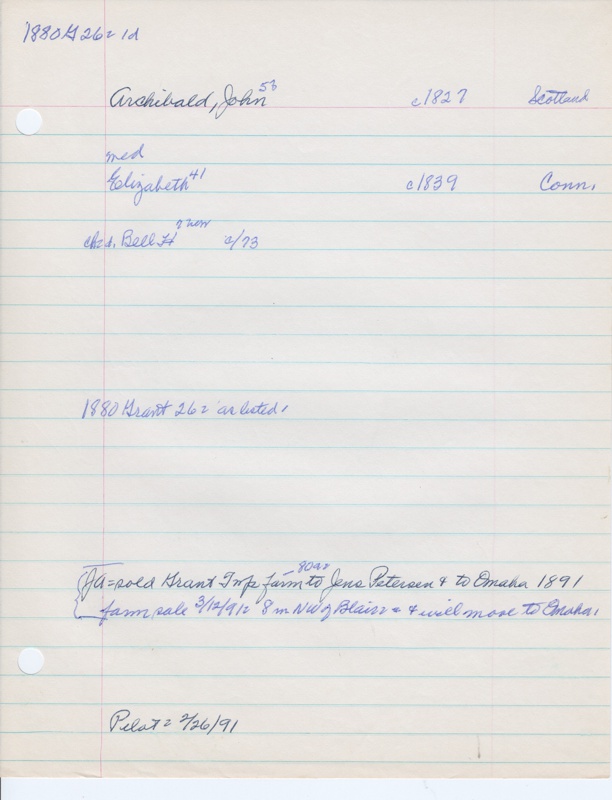 1880 G 26= 1d
Archibald, John 53 c1827 Scotland
med
Elizabeth 41 c1839 Conn.
ch= 1. Bell H c/73
1880 Grant 26= as listed.
JA = sold Grant Twp farm 80a= to Jens Petersen & to Omaha 1891
farm sale 3/12/91= 8 m NW of Blair = & will move to Omaha.
Pilot = 2/26/91